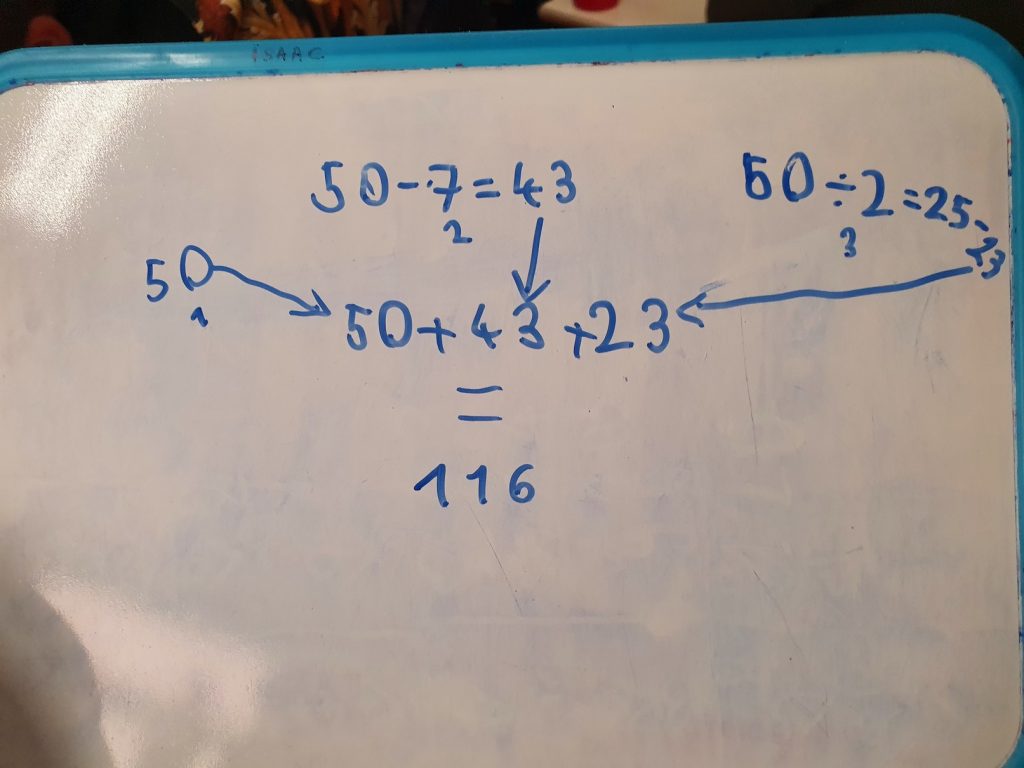 ISAAC
50-7=43
2
50÷2=25-23
3
50
1
50+43+23
=
116